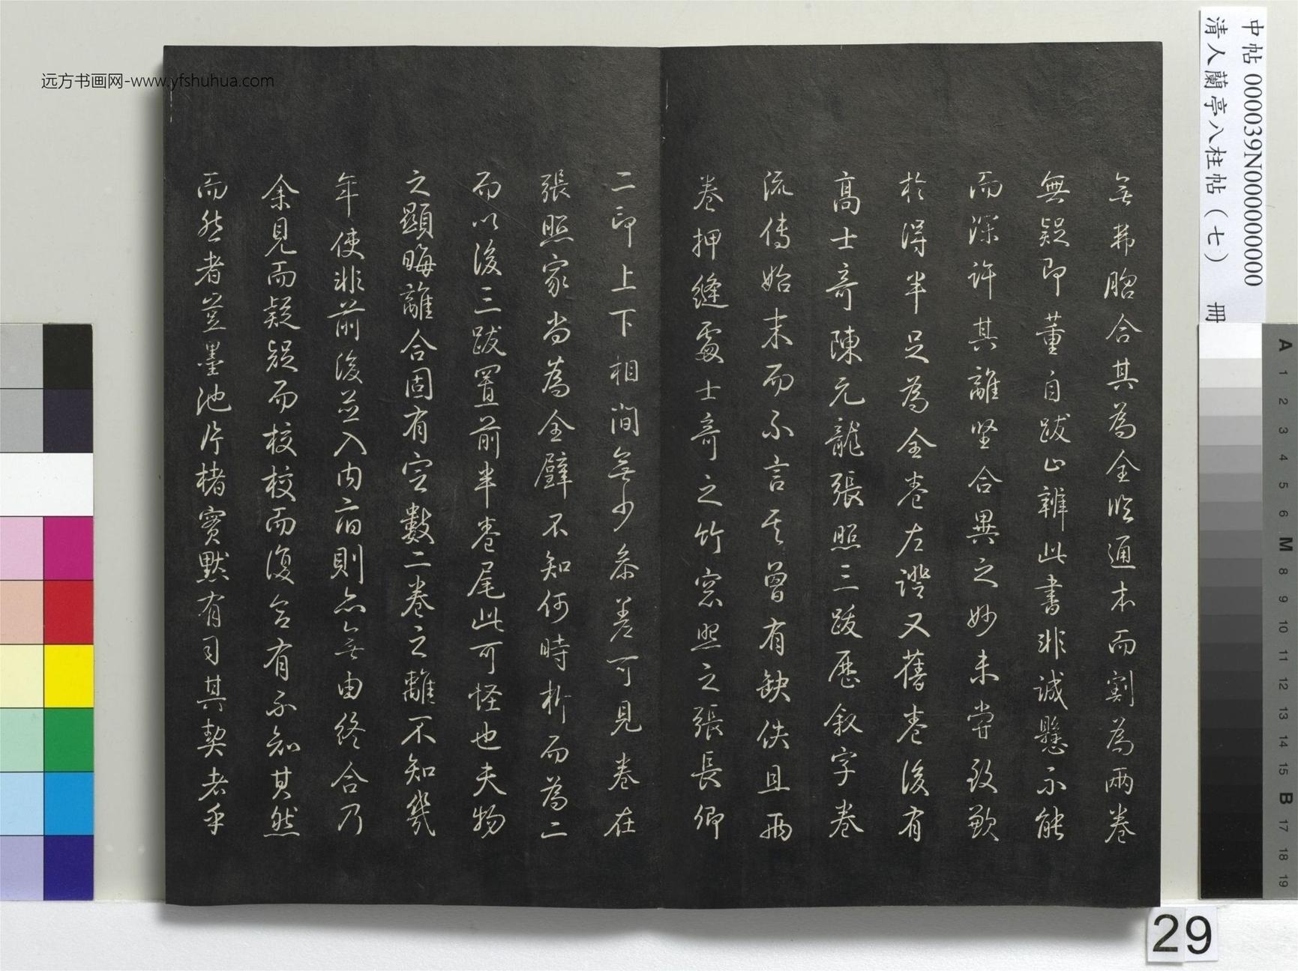 無弗脗合其為全臨通本而割為兩卷
無疑即董自跋止辨此書非誠懸不能
而深許其離堅合異之妙未嘗致歎
於得半足為全卷左證又舊卷後有
高士奇陳元龍張照三跋歷叙字卷
流傳始末而不言其曾有缺佚且兩
卷押縫處士奇之竹窓照之張長卿
二印上下相間無少參差可見卷在
張照家尚為全璧不知何時析而為二
而以後三跋置前半卷尾此可怪也夫物
之顯晦離合固有定數二卷之離不知幾
年使非前後並入内府則亦無由終合乃
余見而疑疑而校校而復合有不知其然
而然者豈墨池片楮寶默有司其契者乎
中帖 000039N000000000
清人蘭亭八柱帖(七) 冊
远方书画网-www.yfshuhua.com
A 1 2 3 4 5 6 M 8 9 10 11 12 13 14 15 B 17 18 19
29